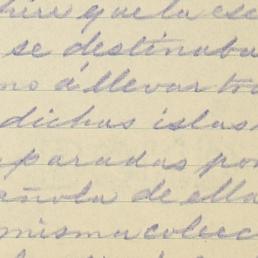 que la esc
se destinaba
no á llevar tro
dichas islas
paradas por
añola de ella
misma colecc